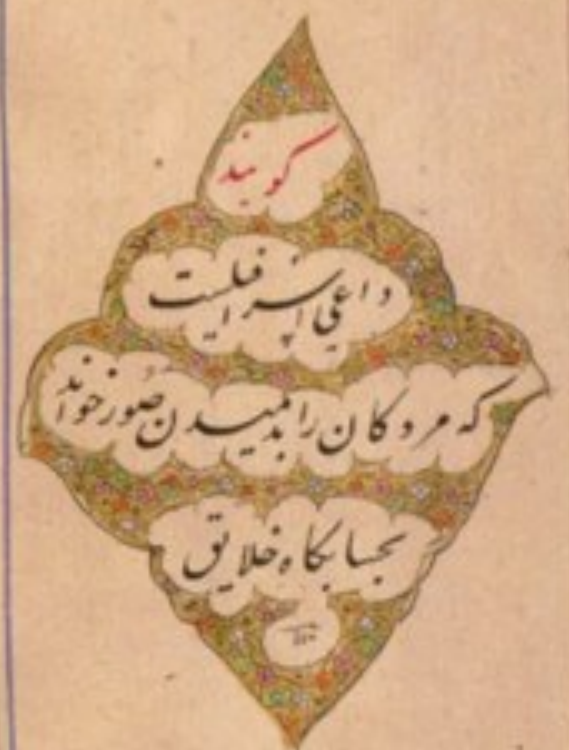 کویند
داعی اسرافیلست
که مردکان را بدمیدن صور خواند
بحسابکاه خلایق